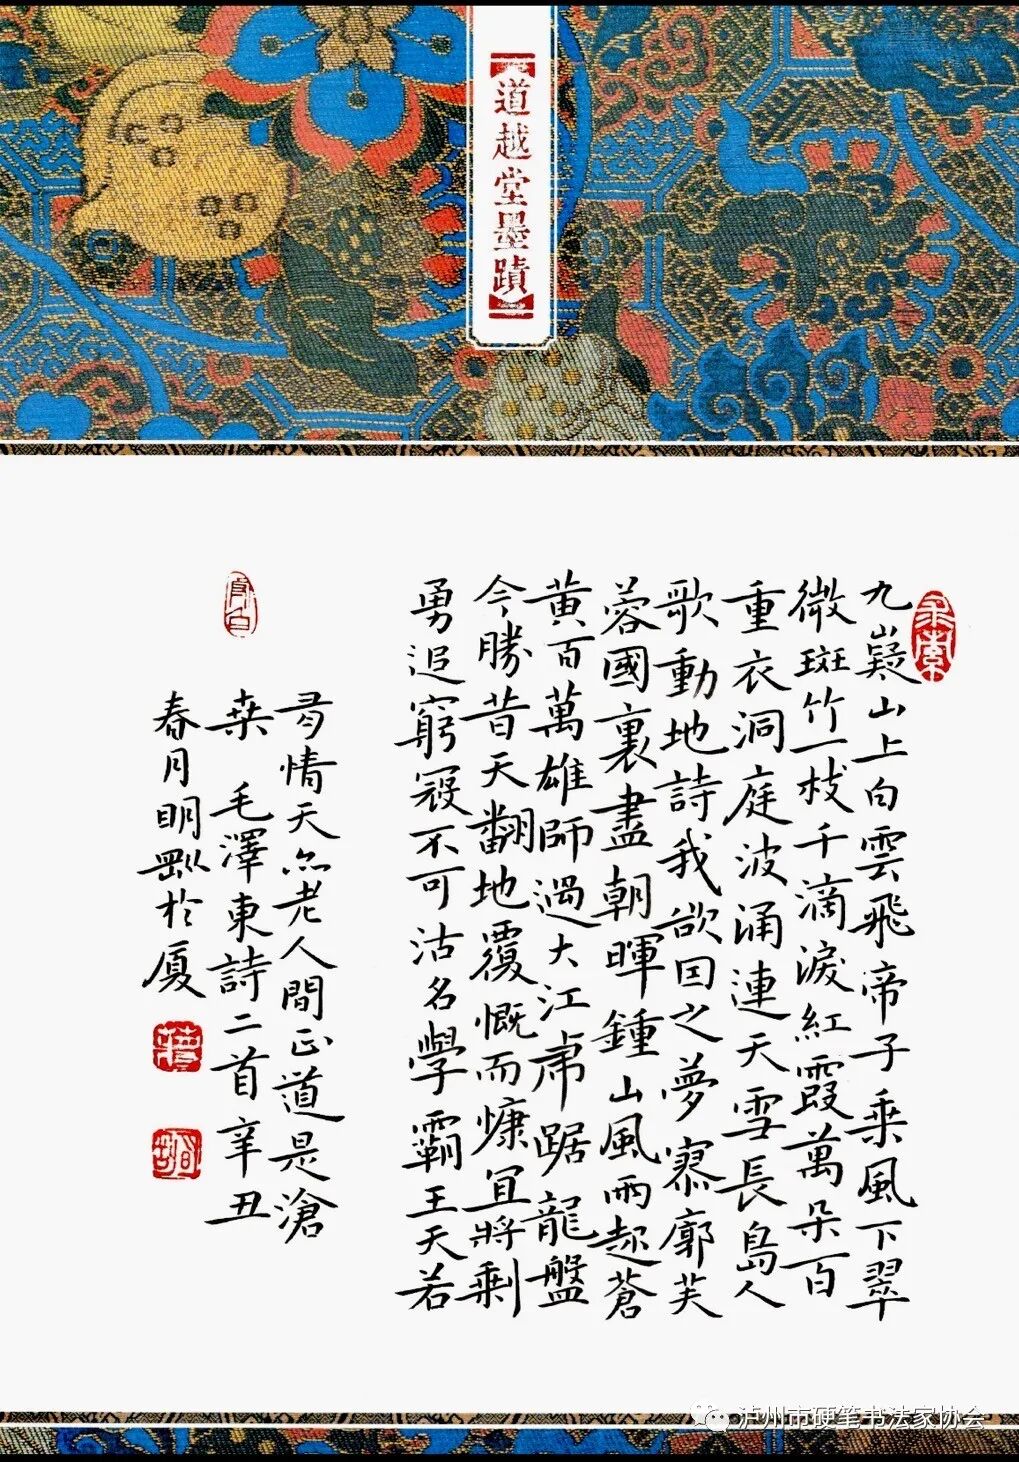 【道越堂墨蹟】
九嶷山上白雲飛帝子乘風下翠
微斑竹一枝千滴淚紅霞萬朵百
重衣洞庭波涌連天雪長島人
歌動地詩我欲因之夢寥廓芙
蓉國裏盡朝暉鍾山風雨起蒼
黃百萬雄師過大江虎踞龍盤
今勝昔天翻地覆慨而慷宜將剩
勇追窮寇不可沽名學霸王天若
有情天亦老人間正道是滄
桑 毛澤東詩二首辛丑
春月明於厦
泸州市硬笔书法家协会